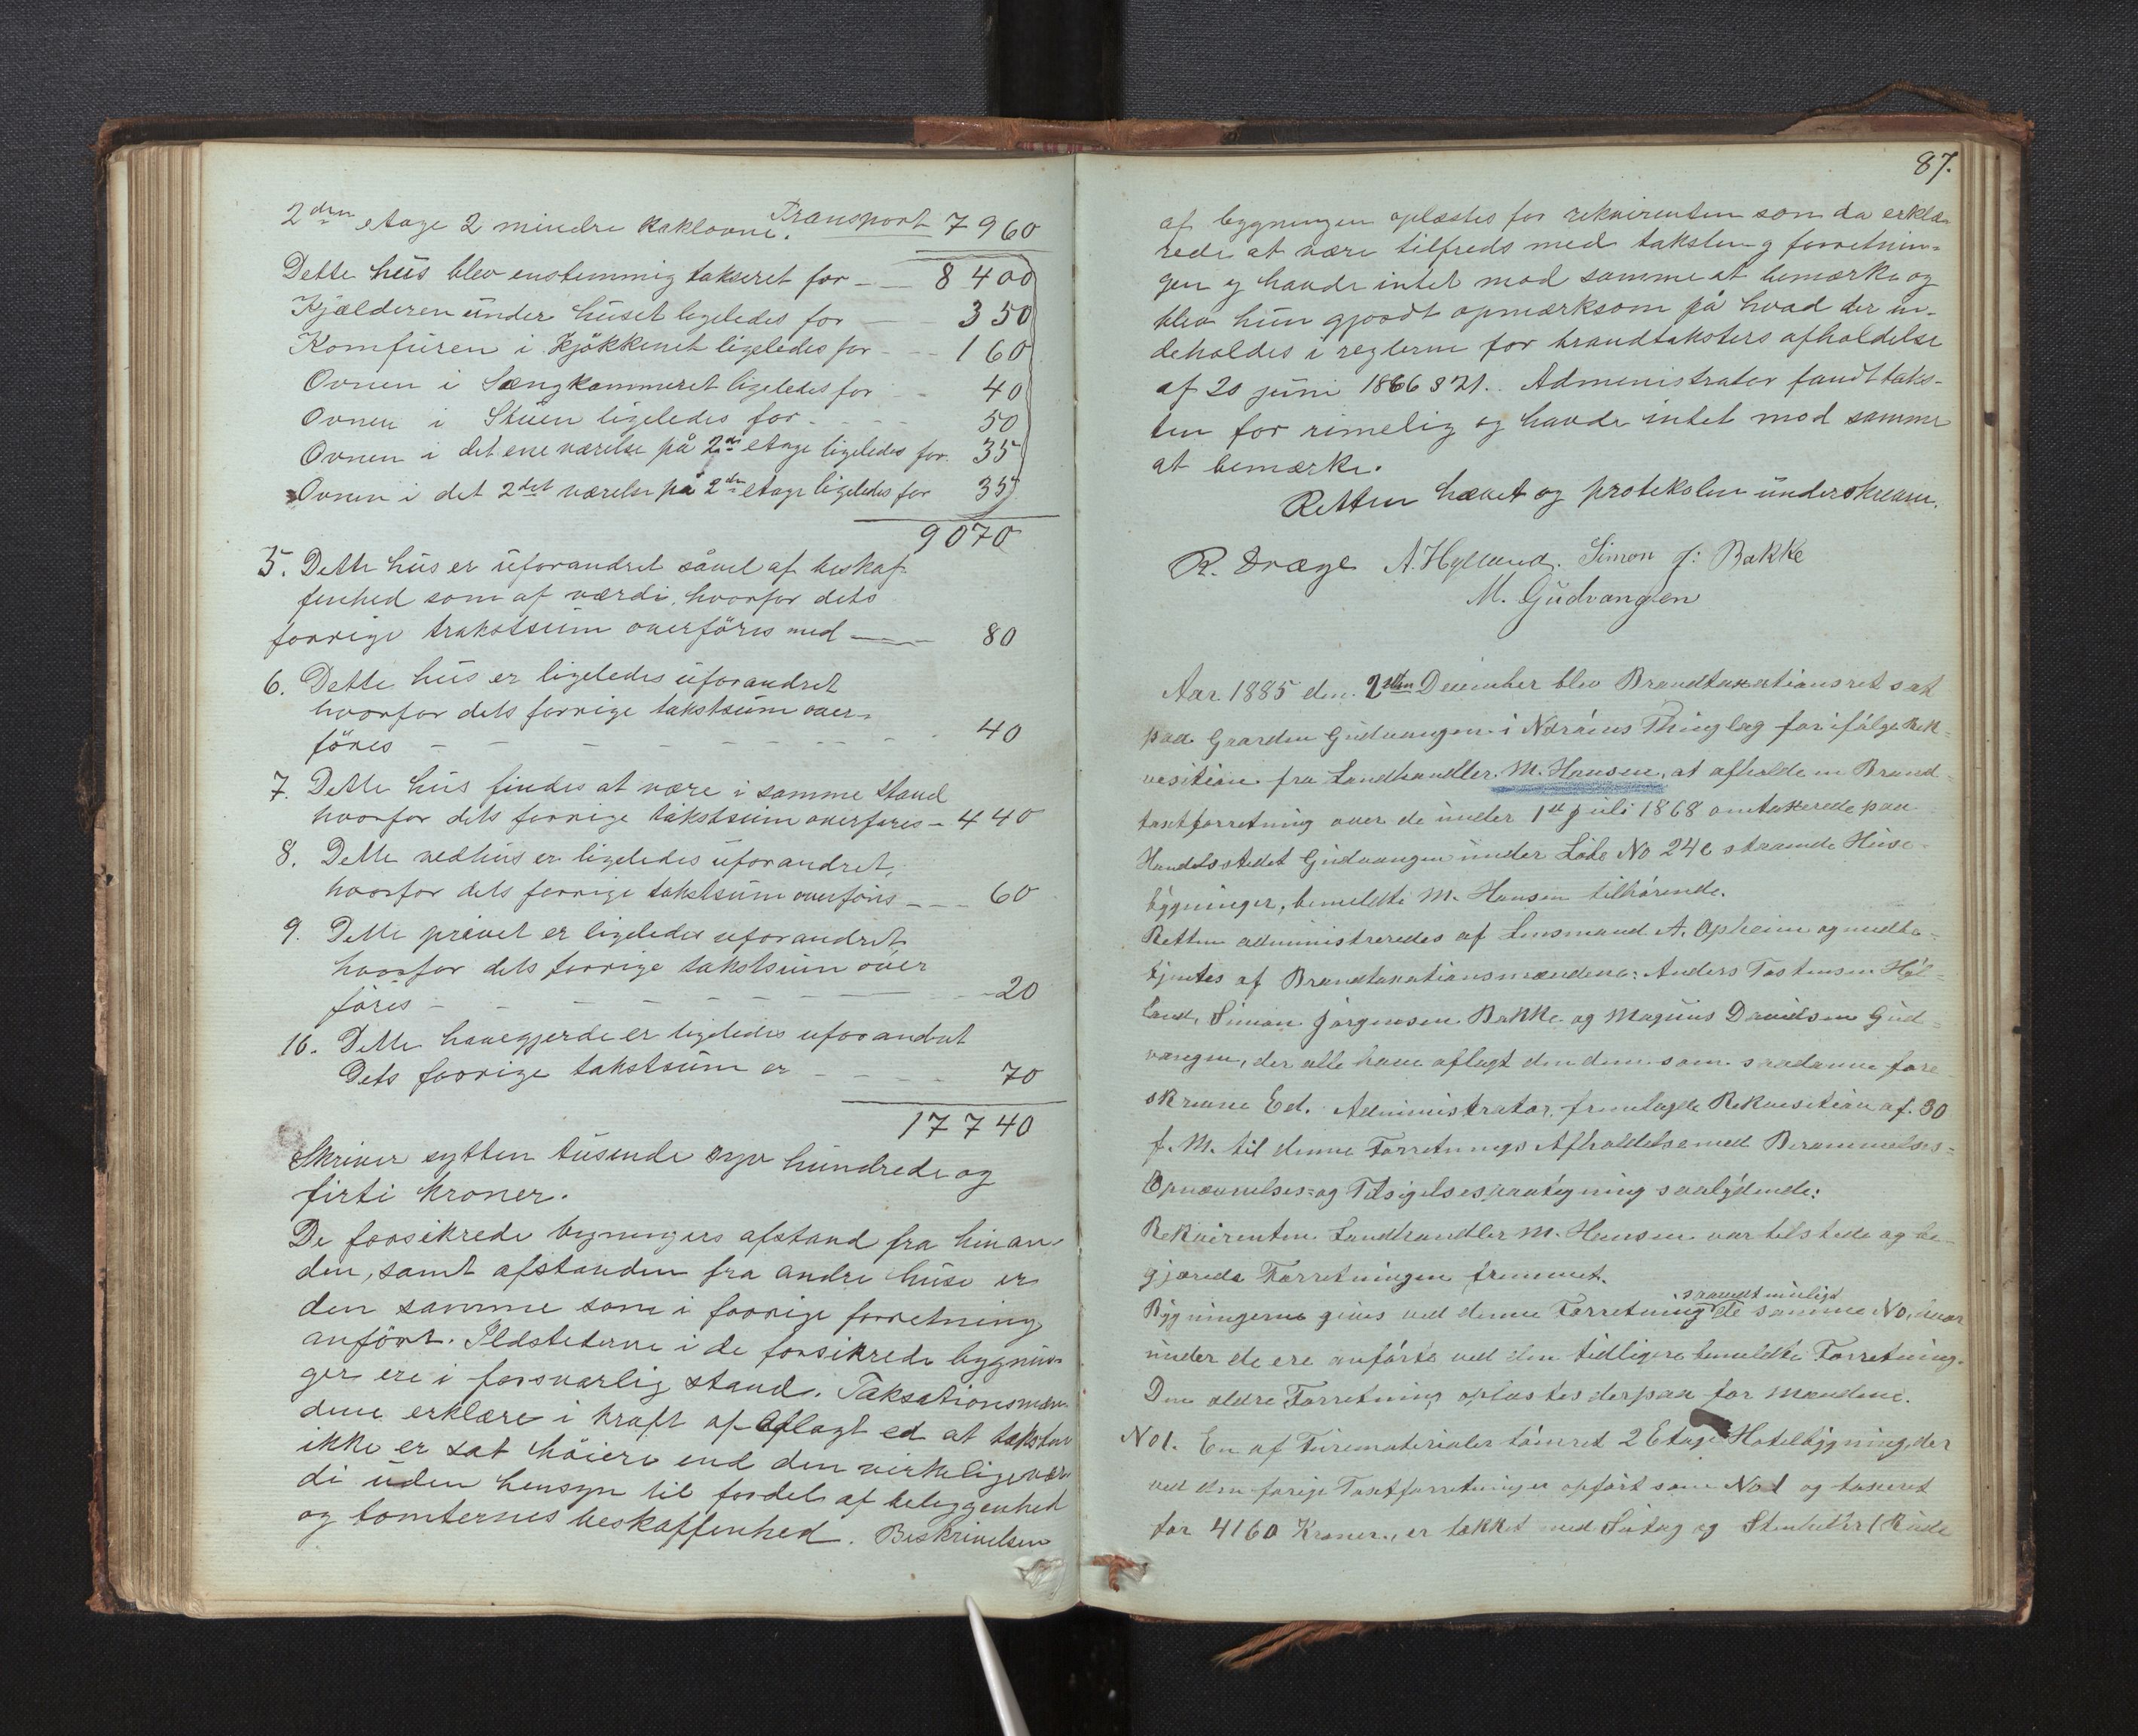 Transport 7960
2den etage 2 mindre kaklovne.
Dette hus blev enstemmig takseret for - 8400
Kjælderen under huset ligeledes for - 350
Komfuren i kjøkkenet ligeledes for - 160
Ovnen i Sængkammeret ligeledes for - 40
Ovnen i Stuen ligeledes for - 50
Ovnen i det ene værelse på 2de etage ligeledes for 35
Ovnen i det 2det værelse på 2de etage ligeledes for 35
9070
5. Dette hus er uforandret såvel af beskaf-
fenhed som af værdi, hvorfor dets
forrige trakstsum overføres med - 80
6. Dette hus er ligeledes uforandret
hvorfor dets forrige takstsum over-
føres - 40
7. Dette hus findes at være i samme stand
hvorfor dets forrige takstsum overføres - 440
8. Dette vedhus er ligeledes uforandret,
hvorfor dets forrige takstsum overføres - 60
9. Dette privet er ligeledes uforandret
hvorfor dets forrige takstsum over
føres - 20
10. Dette havegjerde er ligeledes uforandret
Dets forrige takstsum er - 70
17740
Skriver sytten tusende syv hundrede og
firti kroner.
De forsikrede bygningers afstand fra hinan-
den, samt afstanden fra andre huse er
den samme som i forrige forretning
anført. Ildstederne i de forsikrede bygnin-
ger ere i forsvarlig stand. Taksationsmæn-
dene erklære i kraft af aflagt ed at taksten
ikke er sat høiere end den virkelige vær-
di uden hensyn til fordel af beliggenhed
og tomternes beskaffenhed. Beskrivelsen
87.
af bygningen oplæstes for rekvirenten som da erklæ-
rede at være tilfreds med taksten og forretnin-
gen og havde intet mod samme at bemærke og
blev hun gjordt opmærksom på hvad der in-
deholdes i reglerne for brandtaksters afholdelse
af 20 juni 1866 § 21. Administrator fandt taks-
ten for rimelig og havde intet mod samme
at bemærke.
Retten hævet og protokolen underskreven.
R. Dræge A. Hylland. Simon J: Bakke
M. Gudvangen
Aar 1885 den 2den December blev Brandtaxationsret sat
paa Gaarden Gudvangen i Thinglag for ifølge Rek-
visition fra Landhandler M. Hansen, at afholde en Brand-
taxtforretning over de under 1st Juli 1868 omtaxerede paa
Handelsstedet Gudvangen under Løbe No 24c staaende Huse-
bygninger, bemeldte M. Hansen tilhørende.
Retten administreredes af Lensmand A. Opheim og
betjentes af Brandtaxationsmændene: Anders Tostensen Høl-
land, Simon Jørgensen Bakke og Magnus Davidsen Gud-
vangen, der alle have aflagt den dem som saadanne fore-
skrevne Ed. Administrator fremlagde Rekvisition af 30
f. M. til denne Forretnings Afholdelse med Berammelses-
Opnævnelses- og Tilsigelsespaategning saalydende:
Rekvirenten Landhandler M. Hansen var tilstede og be-
gjærede Forretningen fremmet.
saavidt muligt
Bygningerne gives ved denne Forretning de samme No, hvor
under de ere anførte ved den tidligere bemeldte Forretning.
Den ældre Forretning oplæstes derpaa for Mændene.
No 1. En af Furematerialer tømret 2 Etages Hotelbygning, der
ved den forige Taxtforretning er opført som No 1 og taxeret
for 4160 Kroner, er takket med Sutag og